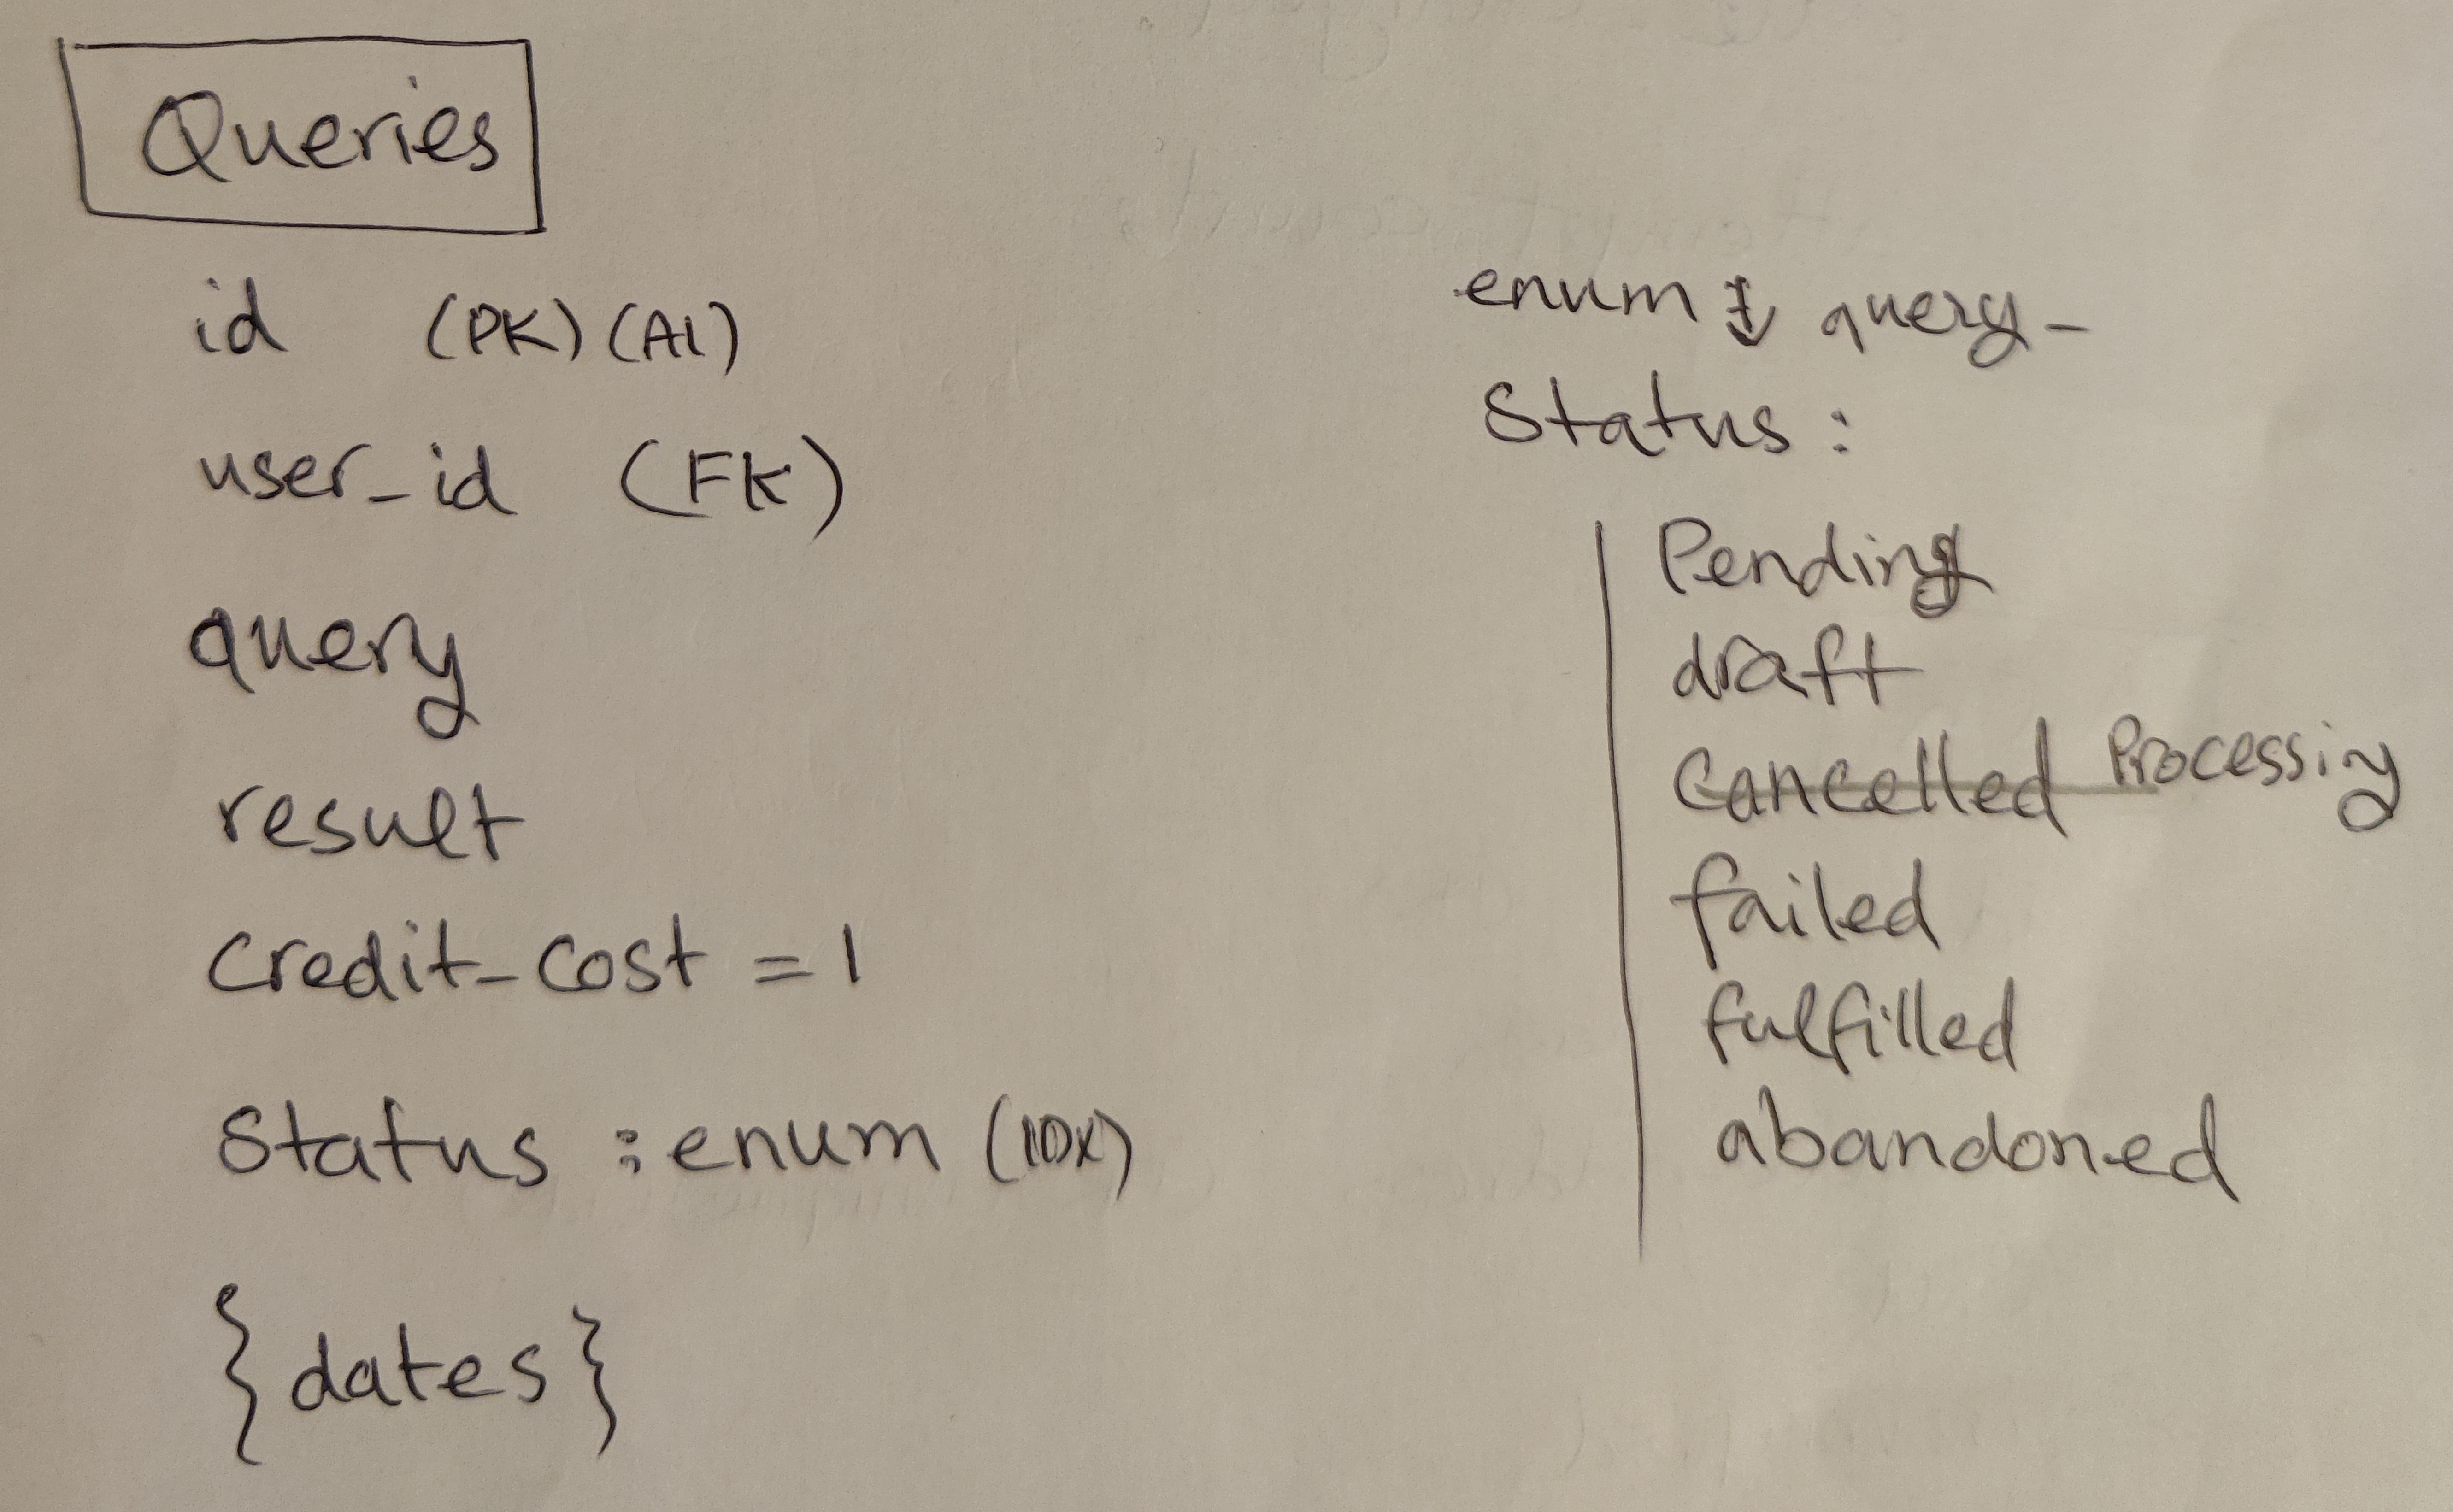 Queries
id (PK) (AI)
user_id (FK)
query
result
credit_cost = 1
status : enum (IDX)
{dates}
enum query_
status :
Pending
draft
cancelled Processing
failed
fulfilled
abandoned